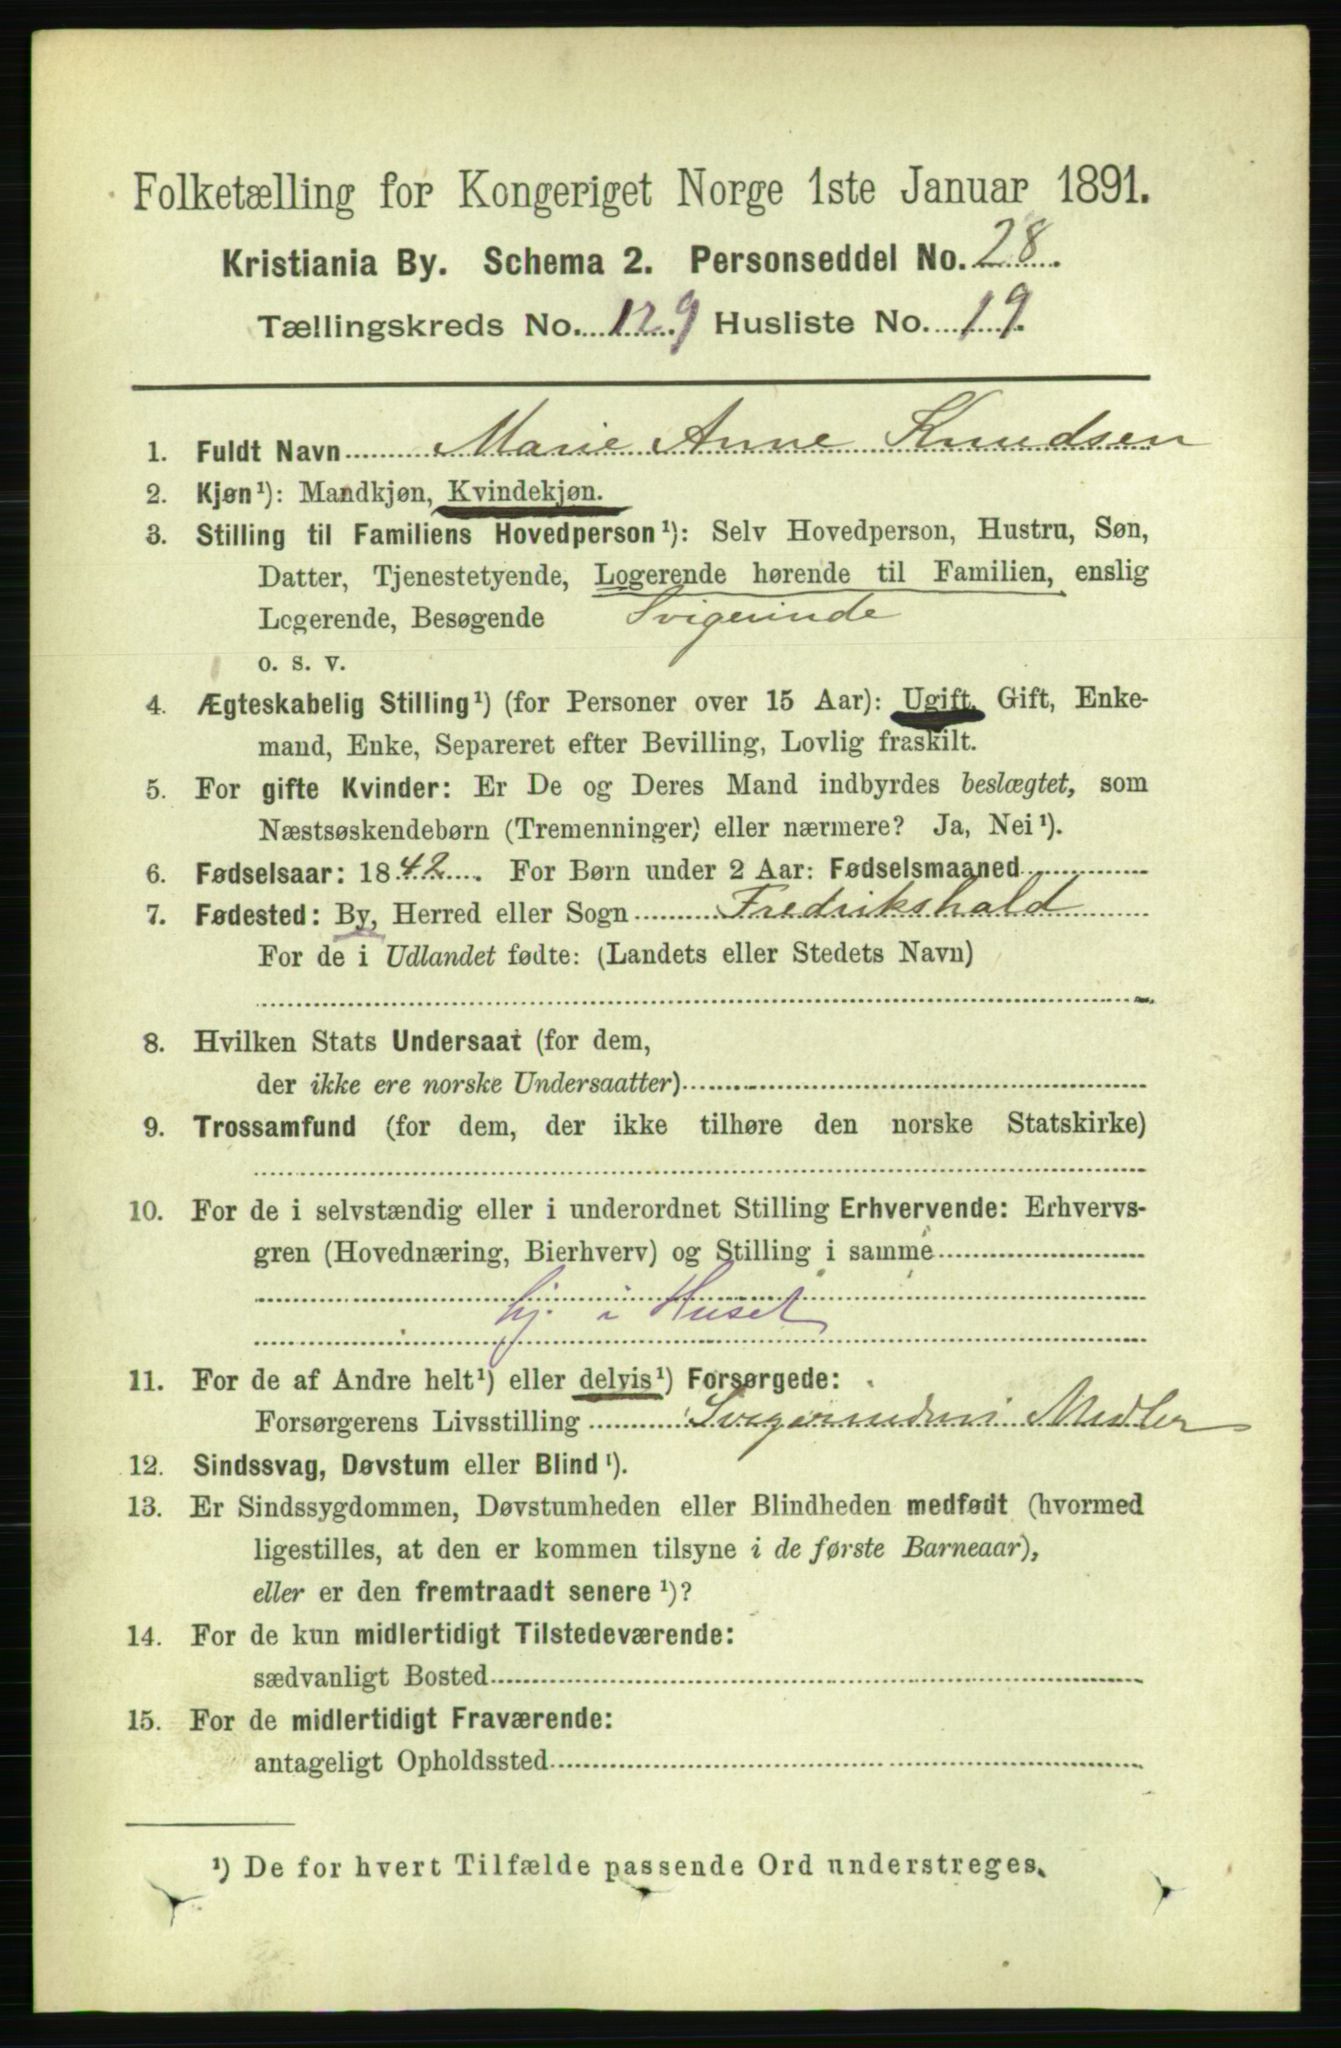 Folketælling for Kongeriget Norge 1ste Januar 1891.
Kristiania By. Schema 2. Personseddel No. 28.
Tællingskreds No. 129 Husliste No. 19.
1. Fuldt Navn Marie Anne Knudsen
2. Kjøn¹): Mandkjøn, Kvindekjøn.
3. Stilling til Familiens Hovedperson¹): Selv Hovedperson, Hustru, Søn,
Datter, Tjenestetyende, Logerende hørende til Familien, enslig
Logerende, Besøgende Svigerinde
o. s. v.
4. Ægteskabelig Stilling¹) (for Personer over 15 Aar): Ugift, Gift, Enke-
mand, Enke, Separeret efter Bevilling, Lovlig fraskilt.
5. For gifte Kvinder: Er De og Deres Mand indbyrdes beslægtet, som
Næstsøskendebørn (Tremenninger) eller nærmere? Ja, Nei¹).
6. Fødselsaar: 1842. For Børn under 2 Aar: Fødselsmaaned
7. Fødested: By, Herred eller Sogn Fredrikshald
For de i Udlandet fødte: (Landets eller Stedets Navn)
8. Hvilken Stats Undersaat (for dem,
der ikke ere norske Undersaatter)
9. Trossamfund (for dem, der ikke tilhøre den norske Statskirke)
10. For de i selvstændig eller i underordnet Stilling Erhvervende: Erhvervs-
gren (Hovednæring, Bierhverv) og Stilling i samme
hj. i Huset
11. For de af Andre helt¹) eller delvis¹) Forsørgede:
Forsørgerens Livsstilling Midler
12. Sindssvag, Døvstum eller Blind¹).
13. Er Sindssygdommen, Døvstumheden eller Blindheden medfødt (hvormed
ligestilles, at den er kommen tilsyne i de første Barneaar),
eller er den fremtraadt senere¹)?
14. For de kun midlertidigt Tilstedeværende:
sædvanligt Bosted
15. For de midlertidigt Fraværende:
antageligt Opholdssted
¹) De for hvert Tilfælde passende Ord understreges.